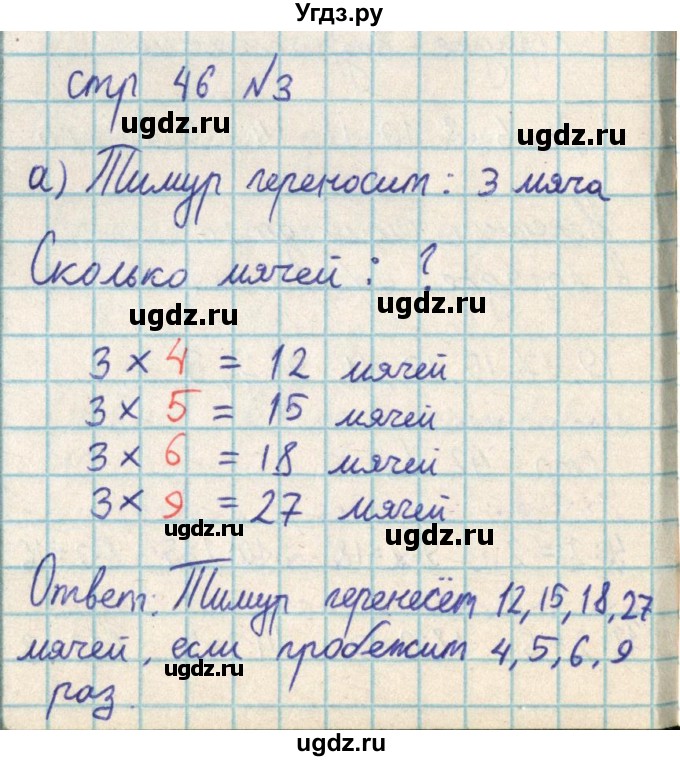 Угдз.ру
стр 46 №3
ugdz.ru ugdz.ru
а) Тимур переносит: 3 мяча
Сколько мячей: ?
ugdz.ru ugdz.ru
3 × 4 = 12 мячей
3 × 5 = 15 мячей
3 × 6 = 18 мячей
3 × 9 = 27 мячей
ugdz.ru ugdz.ru
Ответ: Тимур перенесёт 12, 15, 18, 27
мячей, если пробежит 4, 5, 6, 9
ugdz.ru
раз.
ugdz.ru